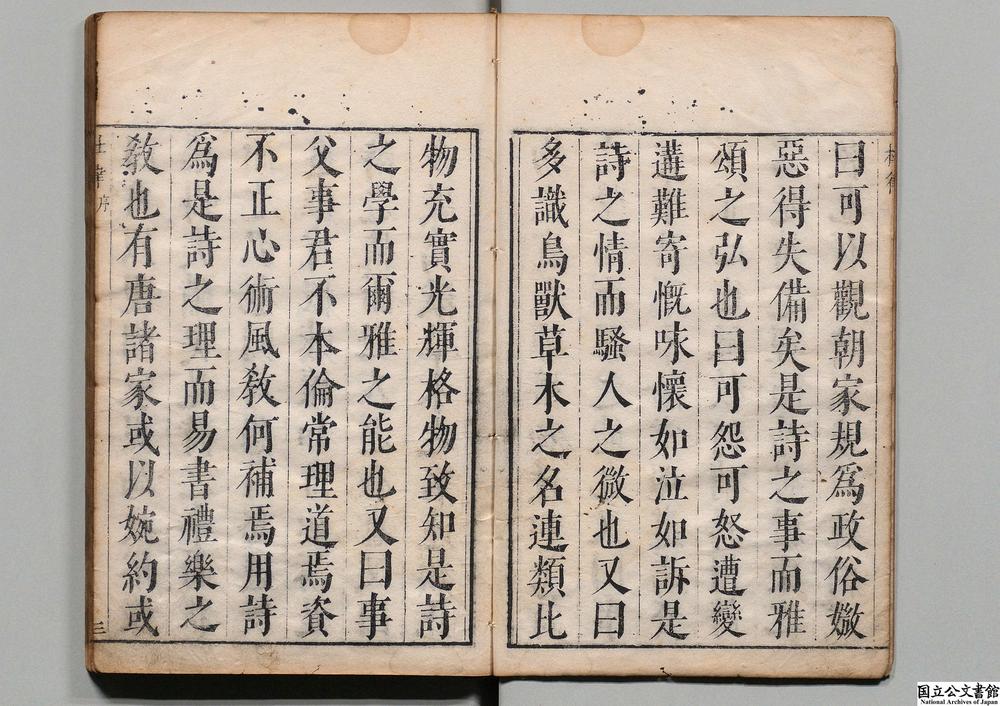 曰可以觀朝家規爲政俗媺
惡得失備矣是詩之事而雅
頌之弘也曰可怨可怒遭變
遘難寄慨咏懷如泣如訴是
詩之情而騷人之微也又曰
多識鳥獸草木之名連類比
物充實光輝格物致知是詩
之學而爾雅之能也又曰事
父事君不本倫常理道焉資
不正心術風敎何補焉用詩
爲是詩之理而易書禮樂之
敎也有唐諸家或以婉約或
序
三
国立公文書館
National Archives of Japan